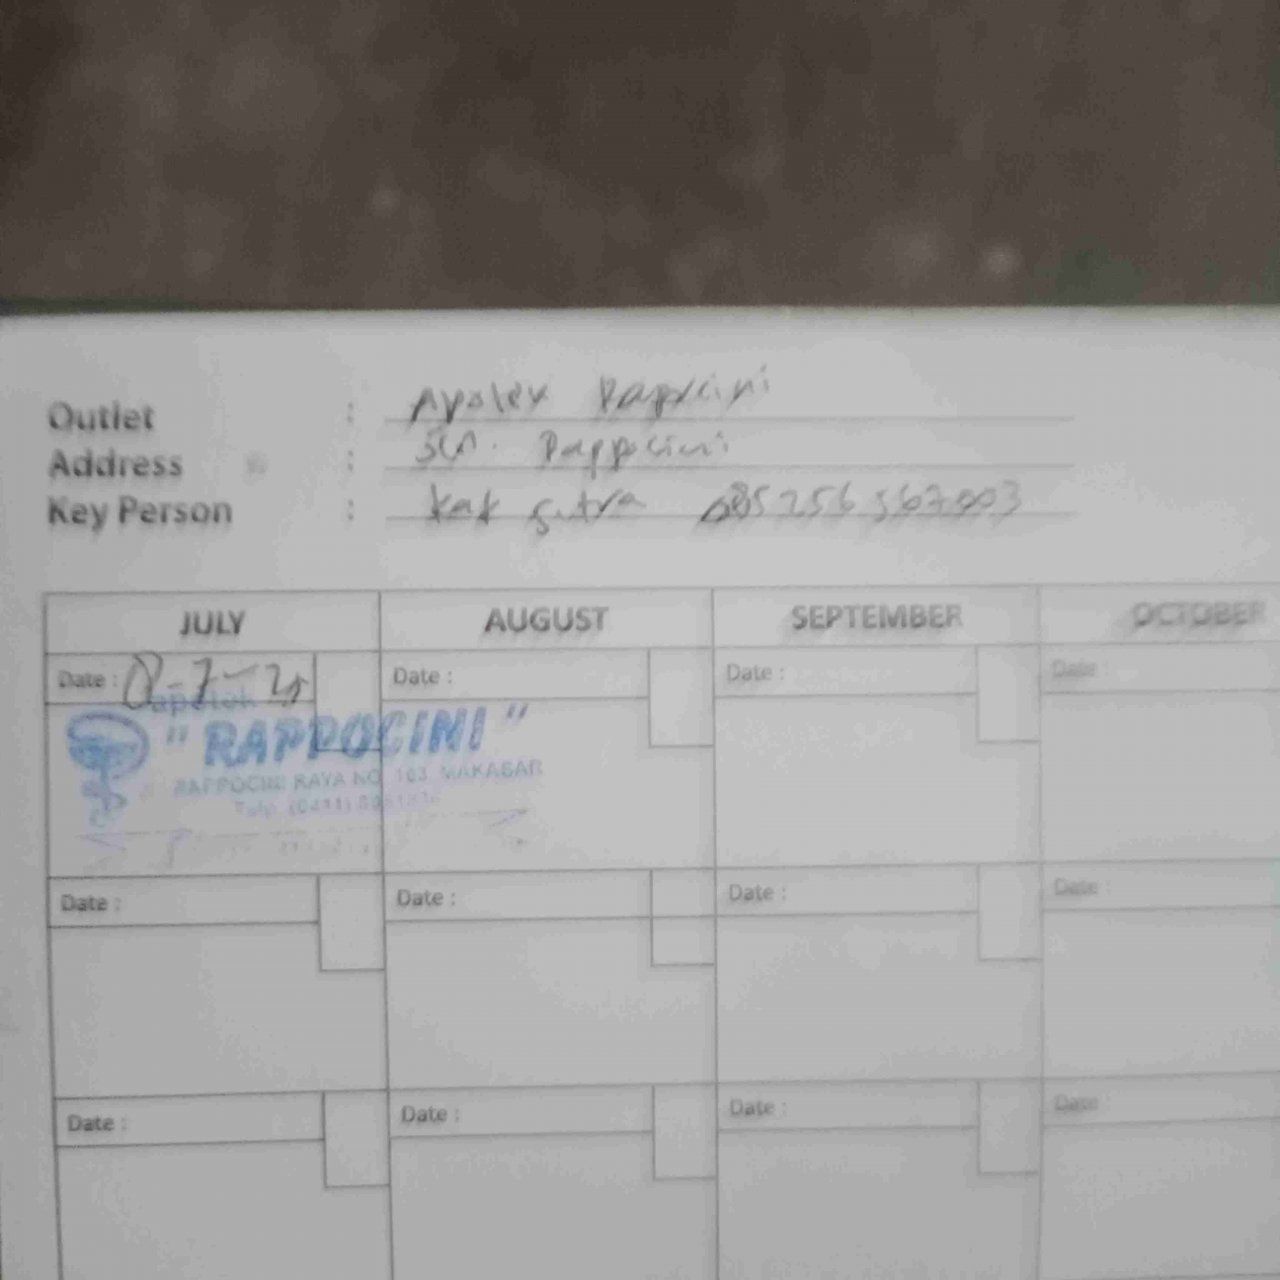 Outlet : Apotek Rappocini
Address : Jln. Rappocini
Key Person : kak Sutra 085256567003
JULY AUGUST SEPTEMBER OCTOBER
Date : Date : Date : Date :
apotek
"RAPPOCINI"
RAPPOCINI RAYA NO. 163 MAKASAR
Telp. (0411)
Date : Date : Date : Date :
Date : Date : Date : Date :